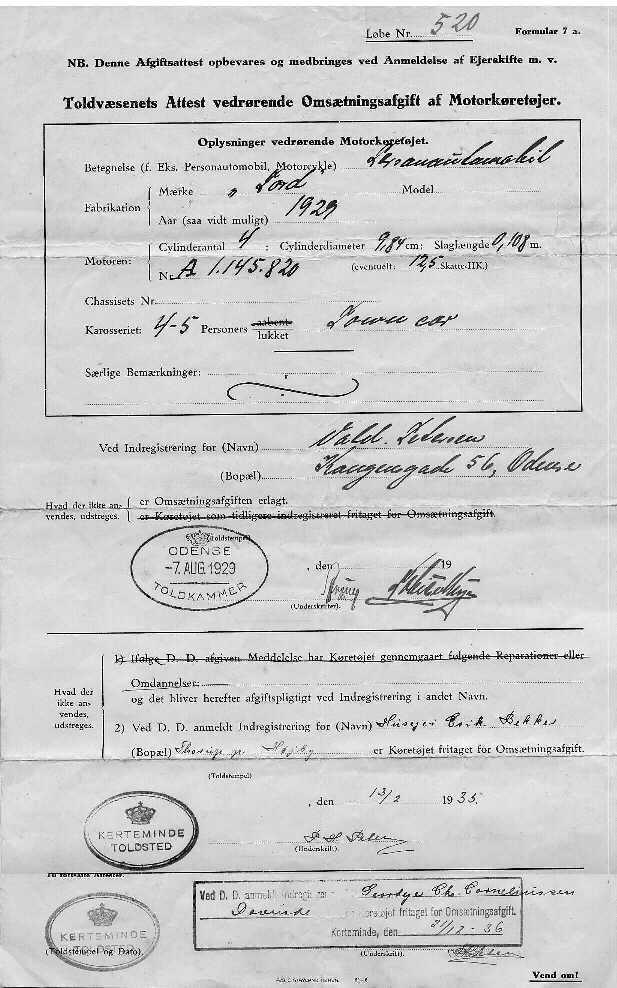 Løbe Nr. 520 Formular 7 a.
NB. Denne Afgiftsattest opbevares og medbringes ved Anmeldelse af Ejerskifte m. v.
Toldvæsenets Attest vedrørende Omsætningsafgift af Motorkøretøjer.
Oplysninger vedrørende Motorkøretøjet.
Betegnelse (f. Eks. Personautomobil, Motorcykle) Personautomobil
Fabrikation
Mærke Ford Model
Aar (saa vidt muligt) 1929
Motoren:
Cylinderantal 4 ; Cylinderdiameter 9,84 cm; Slaglængde 0,108 m.
Nr. A 1.145.820 (eventuelt: 12,5 Skatte-HK.)
Chassisets Nr.
Karosseriet: 4-5 Personers aabent lukket Town car
Særlige Bemærkninger:
Ved Indregistrering for (Navn) Vald. Petersen
(Bopæl) Kongensgade 56, Odense
Hvad der ikke anvendes, udstreges.
er Omsætningsafgiften erlagt.
er Køretøjet som tidligere indregistreret fritaget for Omsætningsafgift.
(Toldstempel)
ODENSE
-7. AUG. 1929
TOLDKAMMER
, den 19
(Underskrifter).
Hvad der ikke anvendes, udstreges.
1) Ifølge D. D. afgiven Meddelelse har Køretøjet gennemgaaet følgende Reparationer eller
Omdannelser:
og det bliver herefter afgiftspligtigt ved Indregistrering i andet Navn.
2) Ved D. D. anmeldt Indregistrering for (Navn) Husejer Erik Bekker
(Bopæl) Højby er Køretøjet fritaget for Omsætningsafgift.
(Toldstempel)
, den 13/2 1935.
KERTEMINDE
TOLDSTED
(Underskrift).
Ved D. D. anmeldt Indregistrering Chr. Corneliussen
Køretøjet fritaget for Omsætningsafgift.
Kerteminde, den 21/12-36
KERTEMINDE
TOLDSTED
(Toldstempel og Dato). (Underskrift).
Vend om!